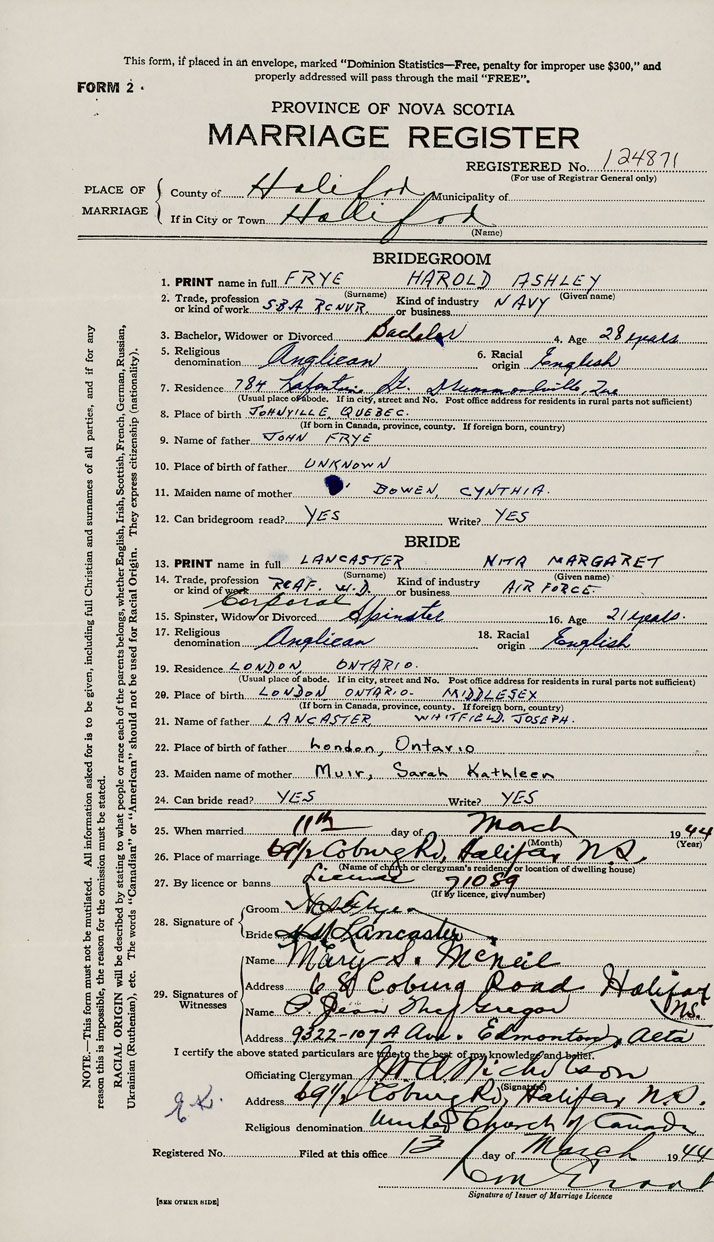 This form, if placed in an envelope, marked "Dominion Statistics—Free, penalty for improper use $300," and
properly addressed will pass through the mail "FREE".
FORM 2
PROVINCE OF NOVA SCOTIA
MARRIAGE REGISTER
REGISTERED No. 124871
(For use of Registrar General only)
PLACE OF MARRIAGE
County of Halifax Municipality of
If in City or Town Halifax
(Name)
BRIDEGROOM
1. PRINT name in full FRYE HAROLD ASHLEY
(Surname) (Given name)
2. Trade, profession or kind of work SBA RCNVR. Kind of industry or business NAVY
3. Bachelor, Widower or Divorced Bachelor 4. Age 28 years
5. Religious denomination Anglican 6. Racial origin English
7. Residence 784 Lafontaine St. Drummondville, Que
(Usual place of abode. If in city, street and No. Post office address for residents in rural parts not sufficient)
8. Place of birth JOHNVILLE QUEBEC.
(If born in Canada, province, county. If foreign born, country)
9. Name of father JOHN FRYE
10. Place of birth of father UNKNOWN
11. Maiden name of mother BOWEN, CYNTHIA.
12. Can bridegroom read? YES Write? YES
BRIDE
13. PRINT name in full LANCASTER NITA MARGARET
(Surname) (Given name)
14. Trade, profession or kind of work RCAF. W.D. Kind of industry or business AIR FORCE.
Corporal
15. Spinster, Widow or Divorced Spinster 16. Age 21 years.
17. Religious denomination Anglican 18. Racial origin English
19. Residence LONDON, ONTARIO.
(Usual place of abode. If in city, street and No. Post office address for residents in rural parts not sufficient)
20. Place of birth LONDON, ONTARIO. MIDDLESEX
(If born in Canada, province, county. If foreign born, country)
21. Name of father LANCASTER WHITFIELD JOSEPH.
22. Place of birth of father London, Ontario
23. Maiden name of mother Muir, Sarah Kathleen
24. Can bride read? YES Write? YES
25. When married 11th day of March 1944
(Month) (Year)
26. Place of marriage 69½ Coburg Rd, Halifax N.S.
(Name of church or clergyman's residence or location of dwelling house)
27. By licence or banns License 71089
(If by licence, give number)
28. Signature of
Groom
Bride Lancaster
29. Signatures of Witnesses
Name Mary S. McNeil
Address 68 Coburg Road Halifax
N.S.
Name P. Jean MacGregor
Address 9322-107A Ave. Edmonton, Alta
I certify the above stated particulars are true to the best of my knowledge and belief.
Officiating Clergyman Nicholson
(Signature)
Address 69½ Coburg Rd, Halifax N.S.
Religious denomination United Church of Canada
Registered No. Filed at this office 13 day of March 1944
Signature of Issuer of Marriage Licence
[SEE OTHER SIDE]
NOTE.—This form must not be mutilated. All information asked for is to be given, including full Christian and surnames of all parties, and if for any
reason this is impossible, the reason for the omission must be stated.
RACIAL ORIGIN will be described by stating to what people or race each of the parents belongs, whether English, Irish, Scottish, French, German, Russian,
Ukrainian (Ruthenian), etc. The words "Canadian" or "American" should not be used for Racial Origin. They express citizenship (nationality).